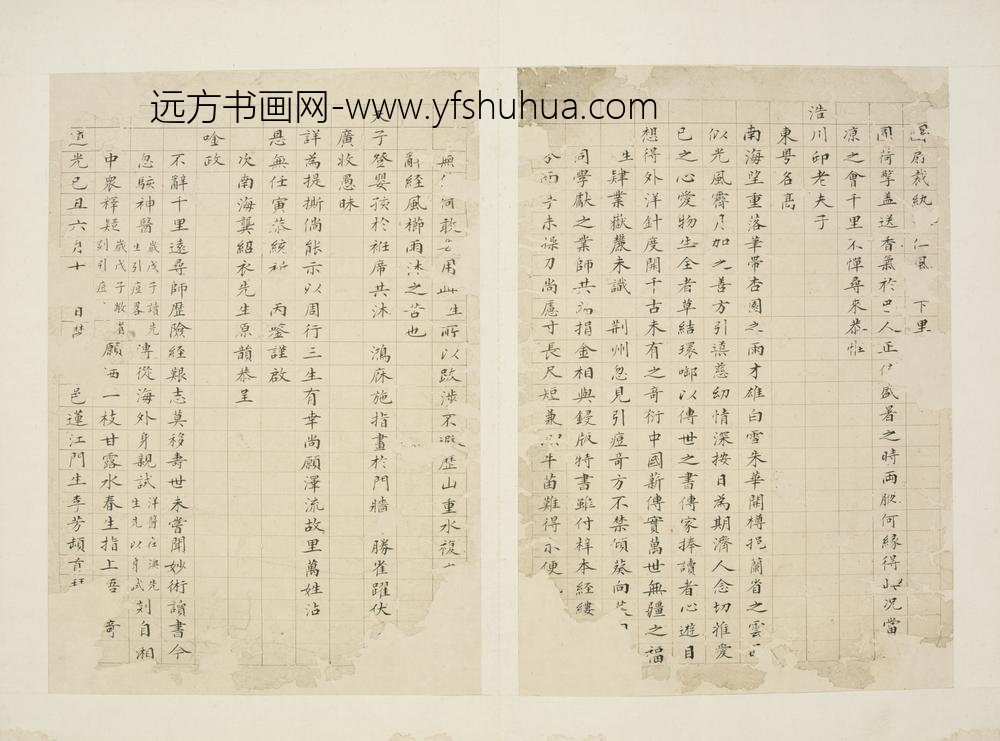 远方书画网-www.yfshuhua.com
裁紈 仁風 下里
團荷擎蓋送香氣於巴人正 盛暑之時兩腋何緣得此況當
凉之會千里不憚尋來恭惟
浩川邱老夫子
東粤名高
南海望重落筆帶杏園之雨才雄白雪朱華開樽挹蘭省之雲
似光風霽月加之善方引溱慈幼情深按日為期濟人念切推愛
己之心愛物生全者草結環啣以傳世之書傳家捧讀者心遊目
想得外洋針度開千古未有之奇衍中國薪傳實萬世無疆之福
生肄業嶽麓未識 荆州忽見引痘奇方不禁傾葵向
同學獻之業師共 捐金相與鋟版特書雖付梓本經縷
分而手未操刀尚慮寸長尺短兼 牛苗難得不便
何敢 用 生所以跋涉不避歷山重水複
辭經風櫛雨沐之苦也
子登嬰孩於袵席共沐 鴻庥施指畫於門牆 勝雀躍伏
廣收愚昧
詳為提撕倘能示以周行三生有幸尚願澤流故里萬姓沾
恩無任寅恭 丙鑒謹啟
次南海龔絅衣先生原韻恭呈
唫政
不辭千里遠尋師歷險經艱志莫移壽世未嘗聞妙術讀書今
忽駭神醫 歲戊子讀先生引痘畧 傳從海外身親試 洋醫在澳先生先以身試 刻自湘
中衆釋疑 歲戊子 刻引痘 願洒一枝甘露水春生指上吾 奇
道光己丑六月十 日 邑蓮江門生李芳頡首